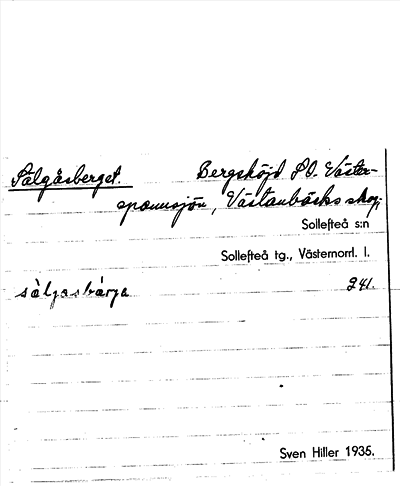 Sälgåsberget. Bergshöjd S.O. Väster-
spannsjön, Västanbäcks skog,
Sollefteå s:n
Sollefteå tg., Västernorrl. l.
241.
Sven Hiller 1935.